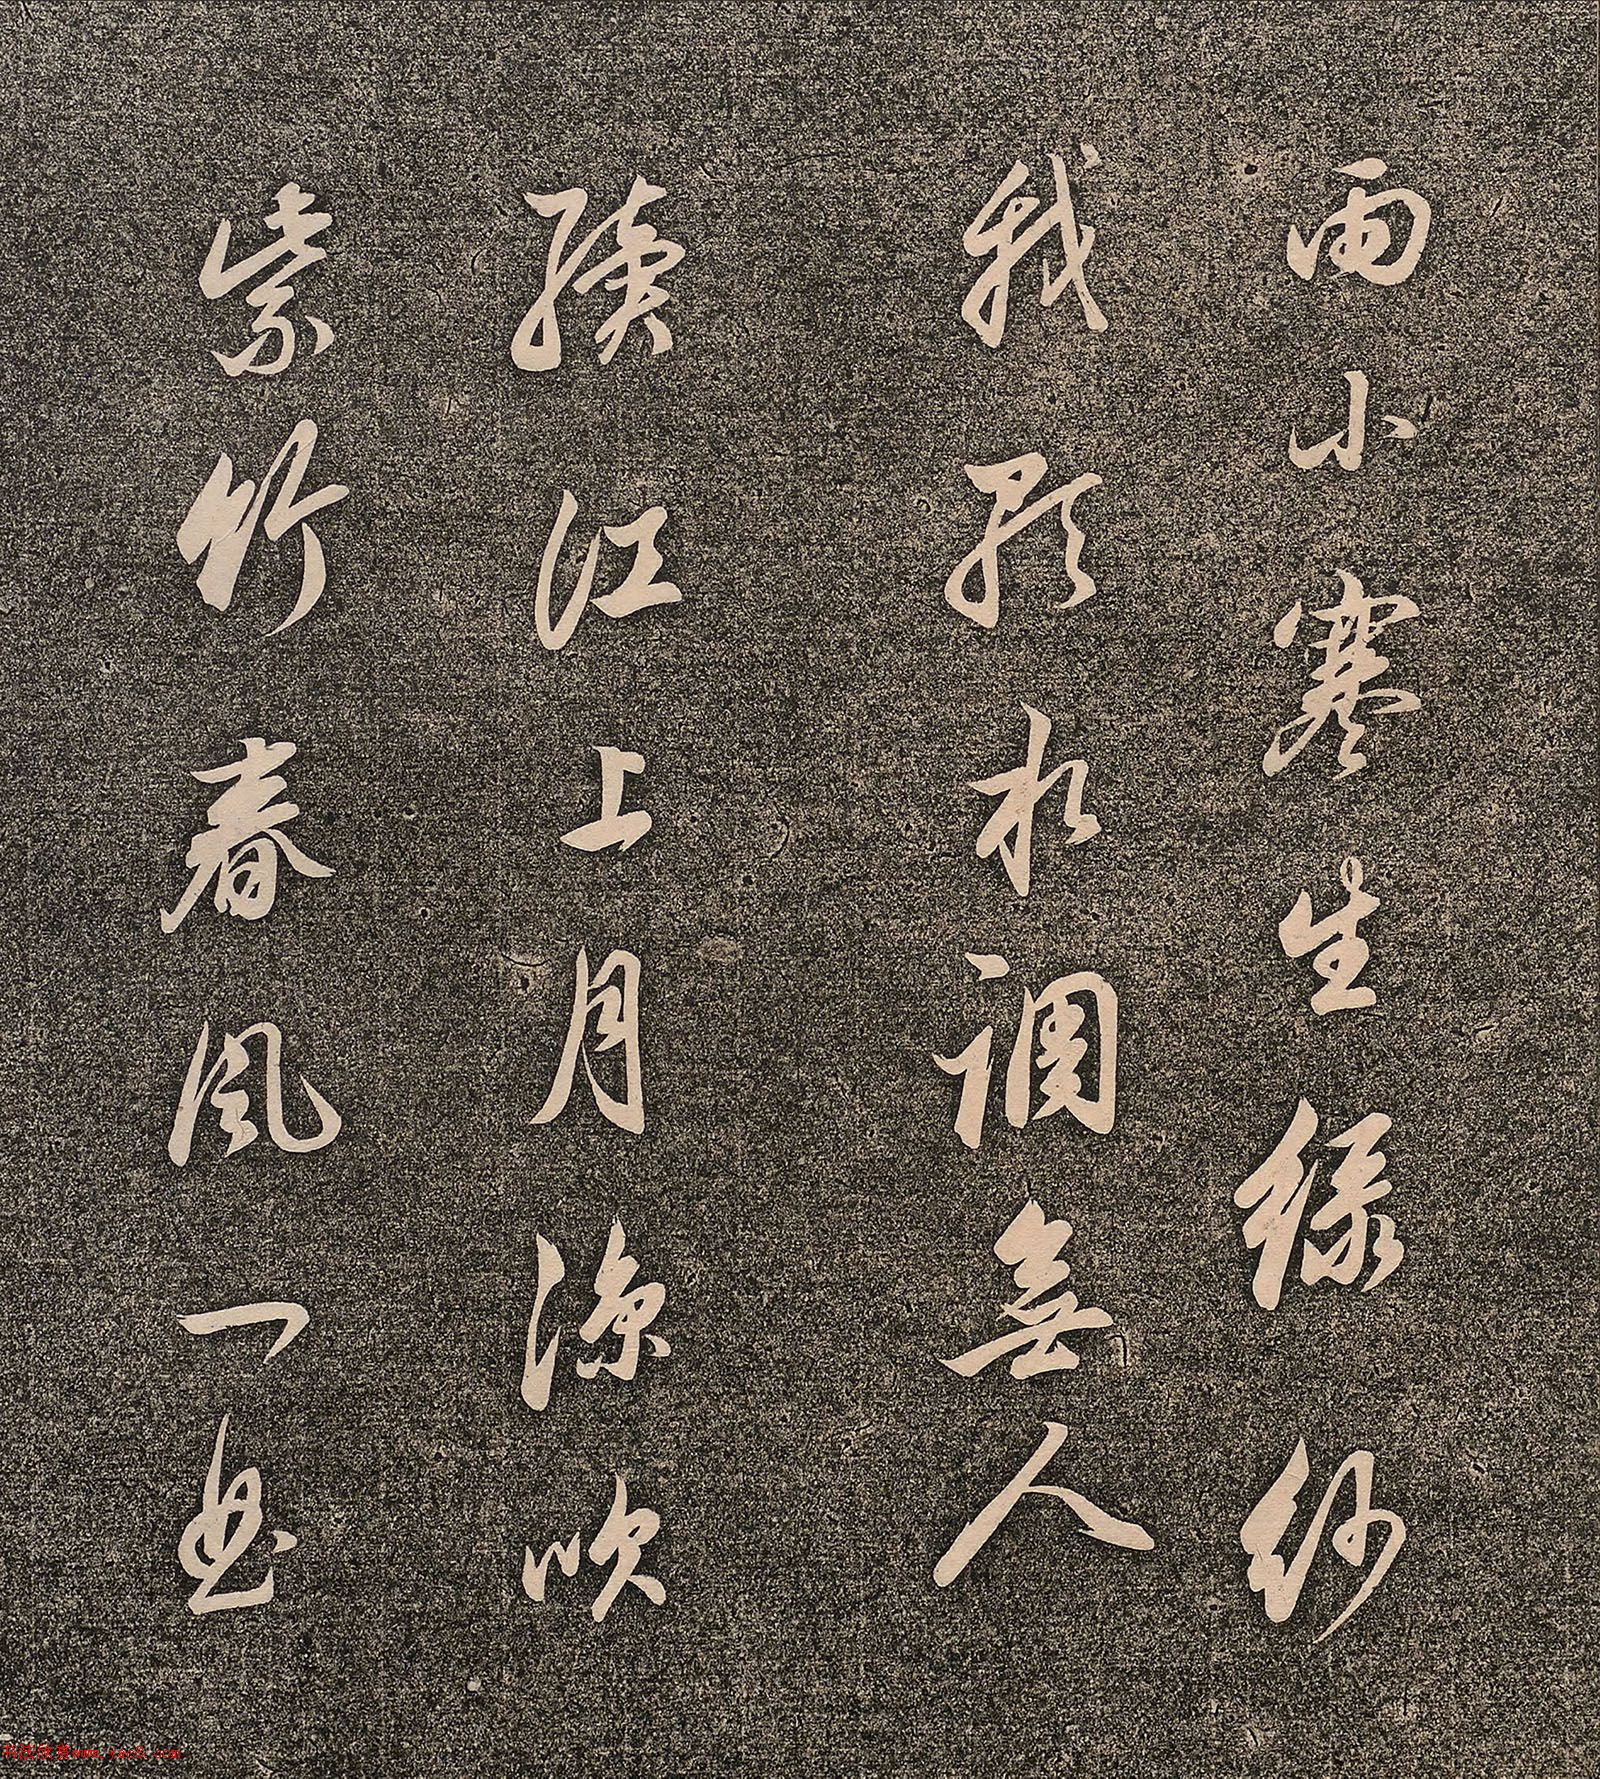 雨小寒生綠紗
我歌水調無人
續江上月涼吹
紫竹春風一曲
书法欣赏www.yac8.com